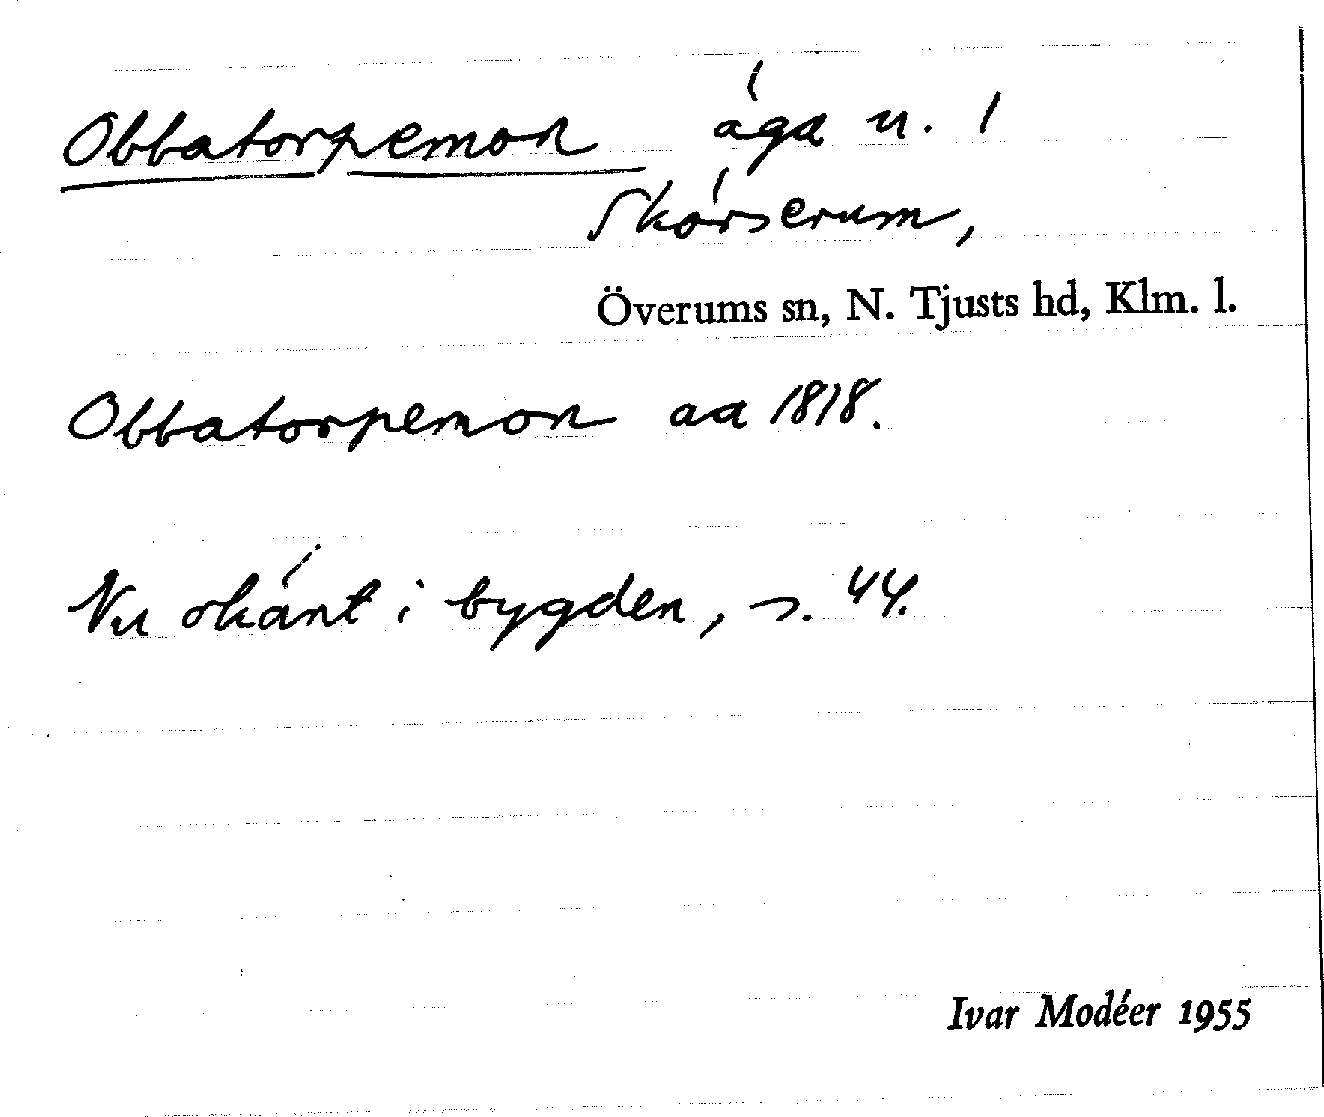 Obbatorpemon äga u. 1
Skörserum,
Överums sn, N. Tjusts hd, Klm. l.
Obbatorpemon aa 1818.
Nu okänt i bygden, s. 44.
Ivar Modéer 1955